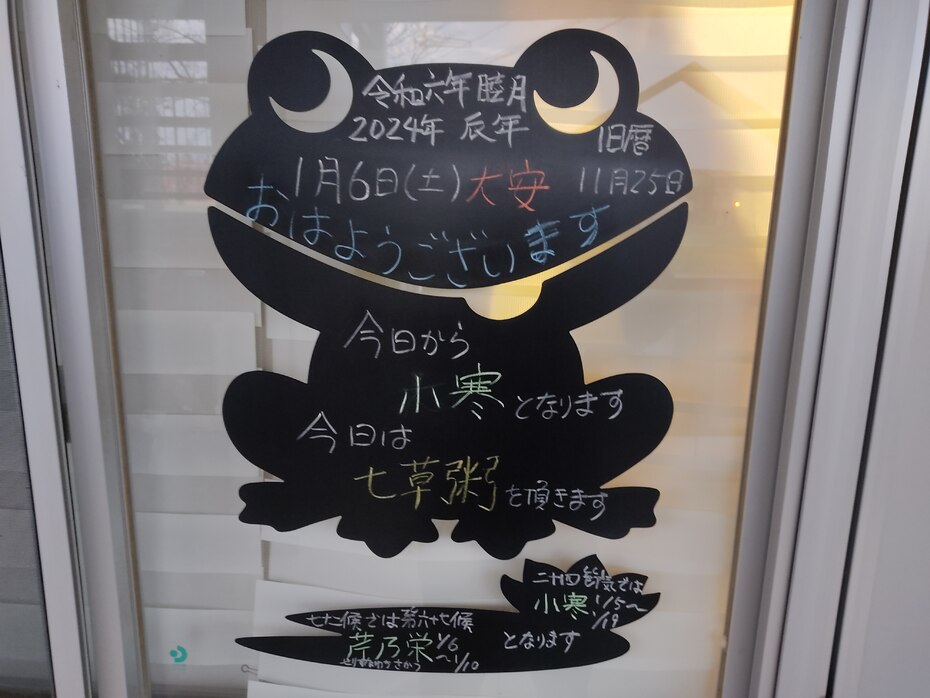 令和六年 睦月
2024年 辰年
旧暦
1月6日(土) 大安 11月25日
おはようございます
今日から
小寒となります
今日は
七草粥を頂きます
二十四節気では
小寒 1/5〜
1/19
七十二候では第六十七候
芹乃栄 1/6
〜1/10
となります